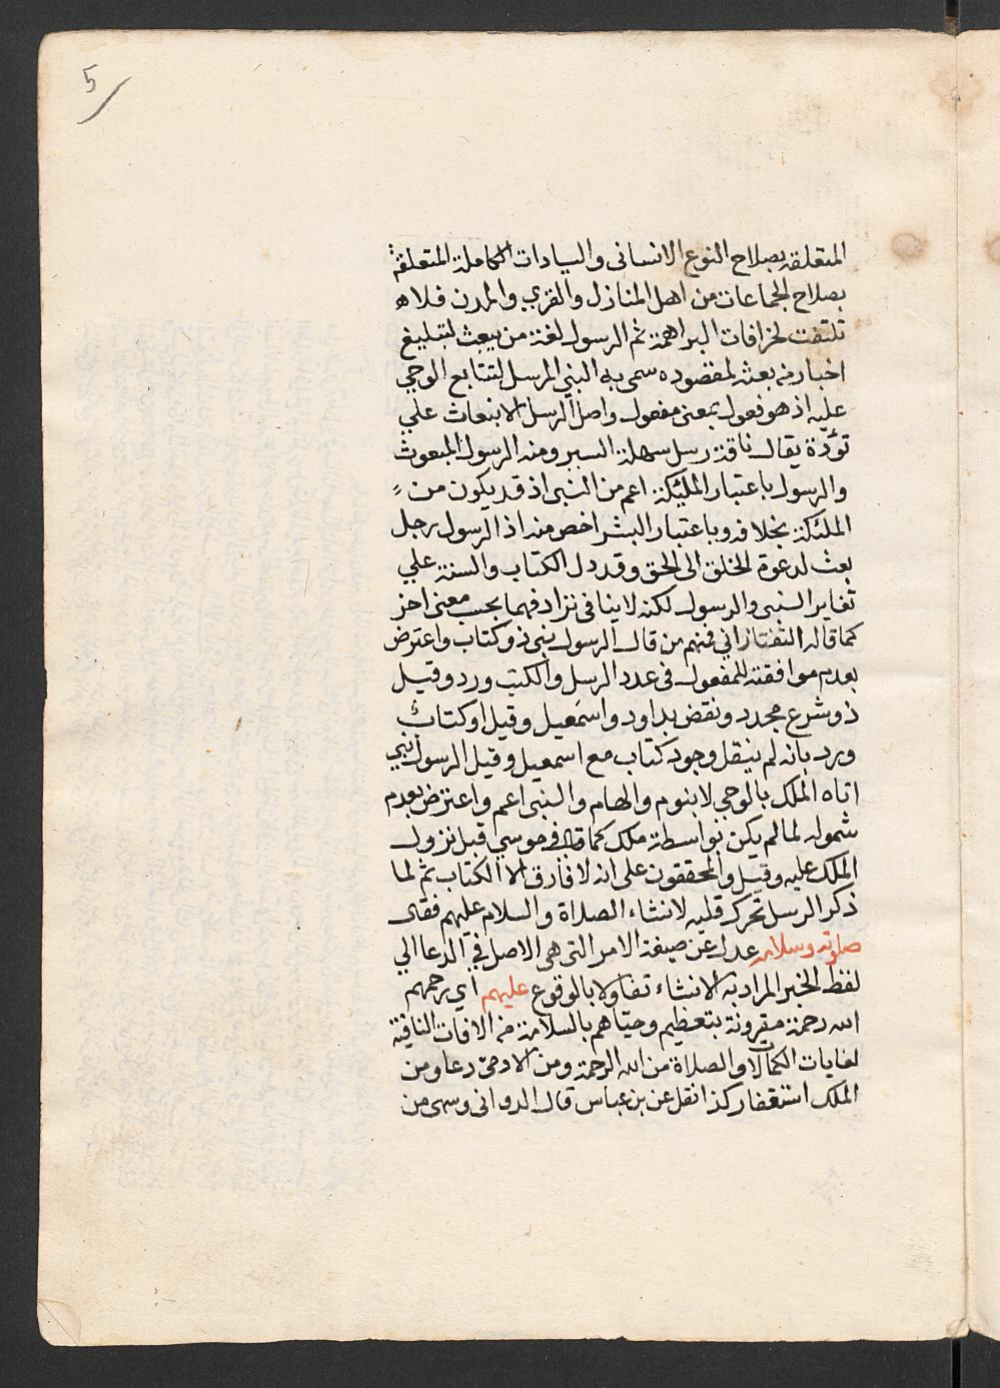 5
المتعلقه بصلاح النوع الانسانى والسيادات الكاملة المتعلقة
بصلاح الجماعات من اهل المنازل والقري والمدن فلا
تلتفت لخرافات البراهمة ثم الرسول لغة من يبعث لتبليغ
اخبار من بعثه لمقصوده سمى به النبي المرسل لتتابع الوحي
عليه اذ هو فعول بمعنى مفعول واصل الرسل الانبعاث علي
تؤدة يقال ناقة رسل سهلة السير ومنه الرسول المبعوث
والرسول باعتبار الملئكة اعم من النبى اذ قد يكون من
الملئكة بخلافه وباعتبار البشر اخص منه اذ الرسول رجل
بعث لدعوة الخلق الى الحق وقد دل الكتاب والسنة علي
تغاير النبى والرسول لكنه لا ينافى ترادفهما بحسب معنى اخر
كما قاله التفتازاني فمنهم من قال الرسول نبى ذو كتاب واعترض
بعدم موافقته للمفعول فى عدد الرسل والكتب ورد وقيل
ذو شرع مجدد ونقض بداود واسمعيل وقيل او كتاب
ورد بانه لم ينقل وجود كتاب مع اسمعيل وقيل الرسول نبي
اتاه الملك بالوحي لا بنوم والهام والنبى اعم واعترض بعدم
شموله لما لم يكن بواسطة ملك كما قال فى موسي قبل نزول
الملك عليه وقيل والمحققون على انه لا فارق الا الكتاب ثم لما
ذكر الرسل تحرك قلبه لانشاء الصلاة والسلام عليهم فقال
صلوته وسلامه عدل عن صيغة الامر التى هى الاصل في الدعا الي
لفظ الخبر المراد به الانشاء تفاولا بالوقوع عليهم اي رحمهم
الله رحمة مقرونة بتعظيم وحياهم بالسلامة من الافات النافية
لغايات الكمالات والصلاة من الله الرحمة ومن الادمى دعا ومن
الملك استغفار كذا نقل عن بن عباس قال الدوانى وسمى من